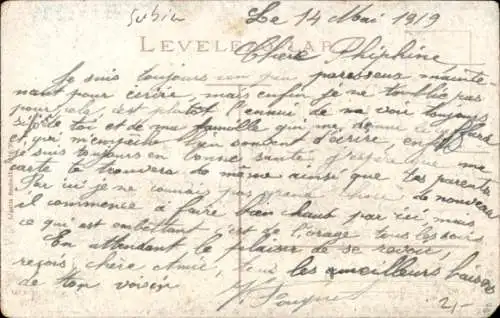 Le 14 Mai 1919
LEVELEZŐLAP
Chère Thiphine
Je suis toujours un peu paresseux mainte
nant pour écrire, mais enfin je ne t'oublie pas
pour cela, c'est plutôt l'ennui de me voir toujours
si loin de toi et de ma famille qui me donne le
et qui m'empêche bien souvent d'écrire, enfin
je suis toujours en bonne santé, j'espère que ma
carte te trouvera de même ainsi que tes parents
Par ici je ne connais pas grand chose de nouveau
il commence à faire bien chaud par ici mais
ce qui est embêtant c'est de l'orage tous les soirs
En attendant le plaisir de se revoir,
reçois chère Amie, tous les meilleurs baisers
de ton voisin
2,-